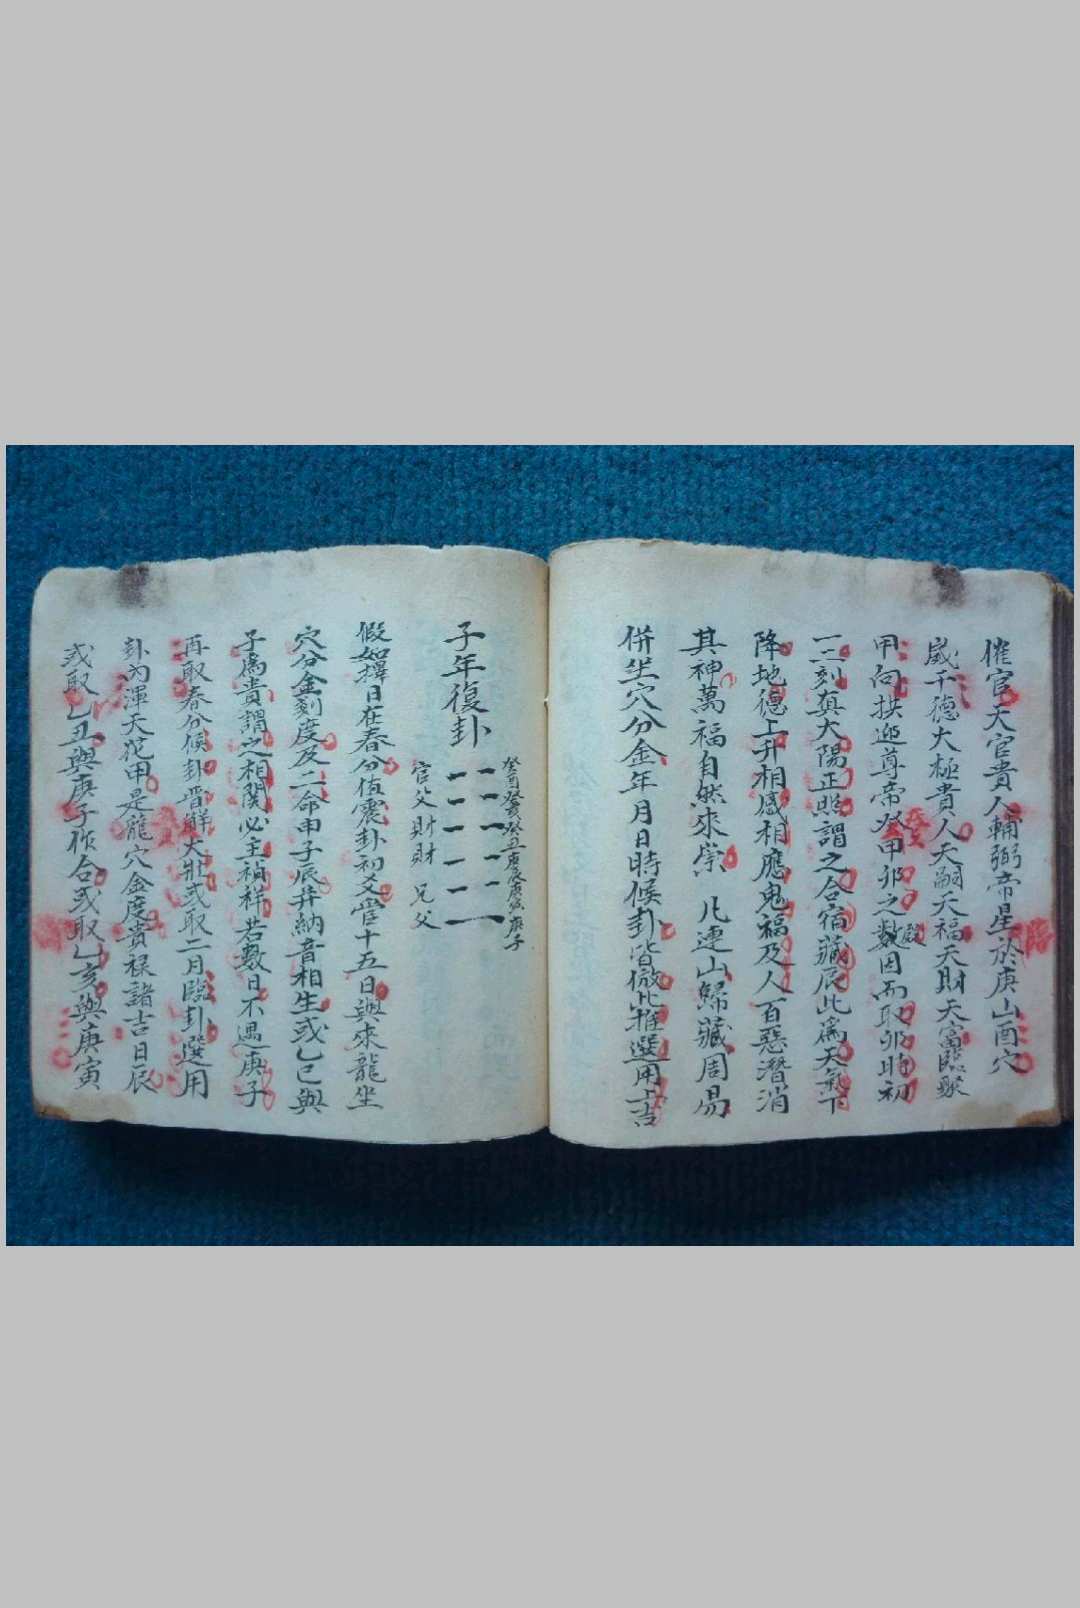 催官天官貴人輔弼帝星於庚山酉穴
歲干德大極貴人天嗣天福天財天富臨聚
甲向拱迎尊帝癸甲邜之數因而取邜時初
一二刻真大陽正照謂之合宿藏辰此為天氣下
降地德上升相感相應鬼福及人百惡潛消
其神萬福自然來崇 凡連山歸藏周易
併坐穴分金年月日時候卦皆倣此推選用上吉
子年復卦
癸酉癸亥癸丑庚辰庚寅庚子
官父財財兄父
假如擇日在春分值震卦初爻管十五日與來龍坐
穴分金刻度及二命申子辰并納音相生或乙巳與
子為貴謂之相関必主禎祥若數日不遇庚子
再取春分候卦晋觧大壯或取二月臨卦選用
卦內渾天范甲是龍穴金度貴禄諸吉日辰
或取乙丑與庚子作合或取乙亥與庚寅